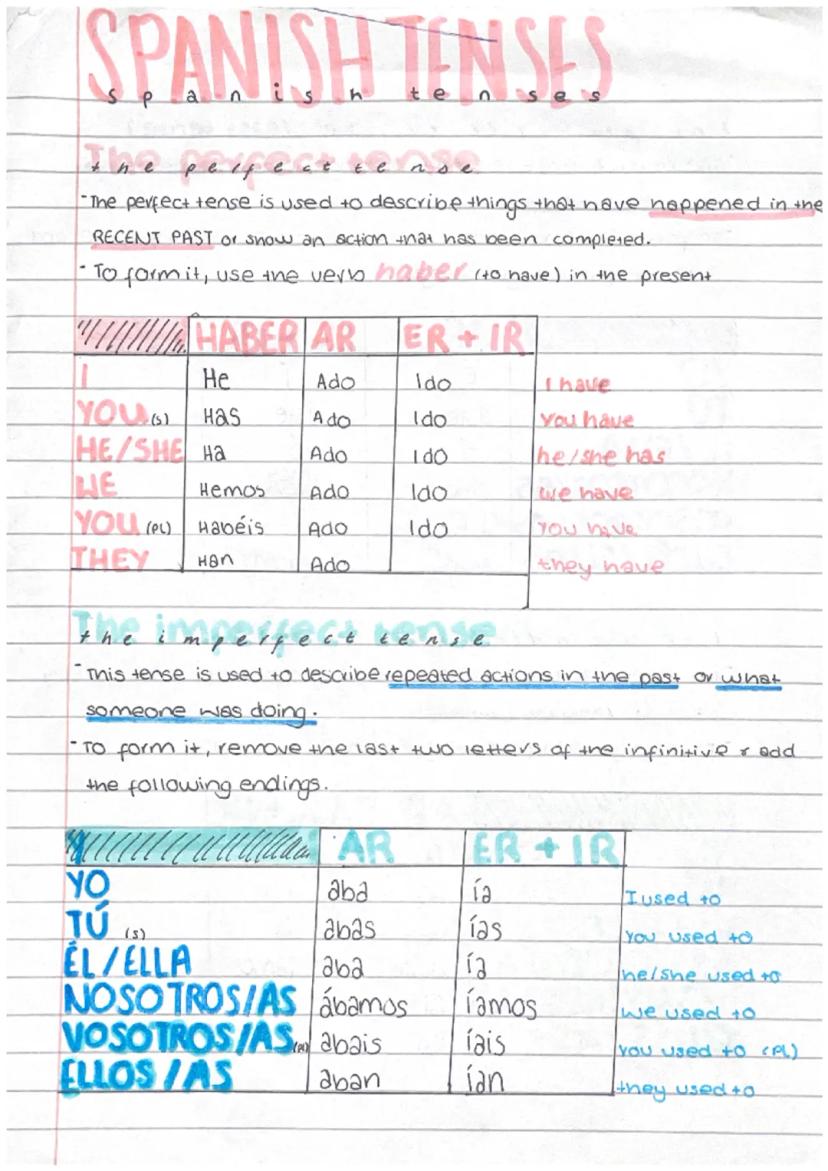 SPANISH TENSES
spanish tenses
The perfect tense
the perfect tense
-The perfect tense is used to describe things that have happened in the
RECENT PAST or show an action that has been completed.
- To form it, use the verb haber (to have) in the present
HABER AR ER + IR
I He Ado Ido I have
YOU (s) Has Ado Ido you have
HE/SHE Ha Ado Ido he/she has
WE Hemos Ado Ido we have
YOU (PL) Habéis Ado Ido you have
THEY Han Ado they have
The imperfect tense
the imperfect tense
- This tense is used to describe repeated actions in the past or what
someone was doing.
- To form it, remove the last two letters of the infinitive & add
the following endings.
AR ER + IR
YO aba ía I used to
TÚ (s) abas ías you used to
ÉL/ELLA aba ía he/she used to
NOSOTROS/AS ábamos íamos we used to
VOSOTROS/AS (PL) abais íais you used to (PL)
ELLOS/AS aban ían they used to